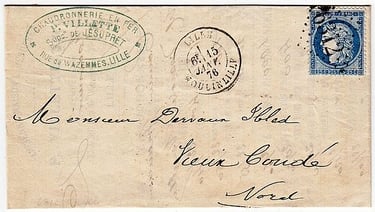 CHAUDRONNERIE EN FER
P. VILLETTE
SUCCR DE JESUPRET
RUE DE WAZEMMES, LILLE
LILLE
15
JANV.
76
MOULIN-LILLE
Monsieur Dervaux Ibled
Vieux Condé
Nord